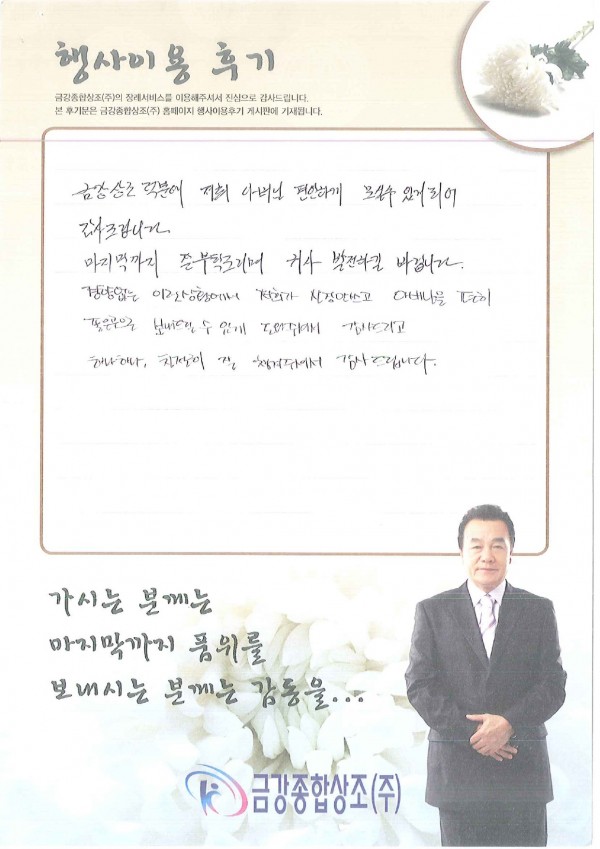 행사이용 후기
금강종합상조(주)의 장례서비스를 이용해주셔서 진심으로 감사드립니다.
본 후기분은 금강종합상조(주) 홈페이지 행사이용후기 게시판에 기재됩니다.
금강상조 덕분에 저희 아버님 편안하게 모실수 있게되어
감사드립니다.
마지막까지 잘부탁드리며 귀사 발전하길 바랍니다.
경황없는 이런상황에서 저희가 신경안쓰고 아버님을
좋은곳으로 보내드릴 수 있게 도와주셔서 감사드리고
하나하나, 친절히 잘 챙겨주셔서 감사드립니다.
가시는 분께는
마지막까지 품위를
보내시는 분께는 감동을...
금강종합상조(주)